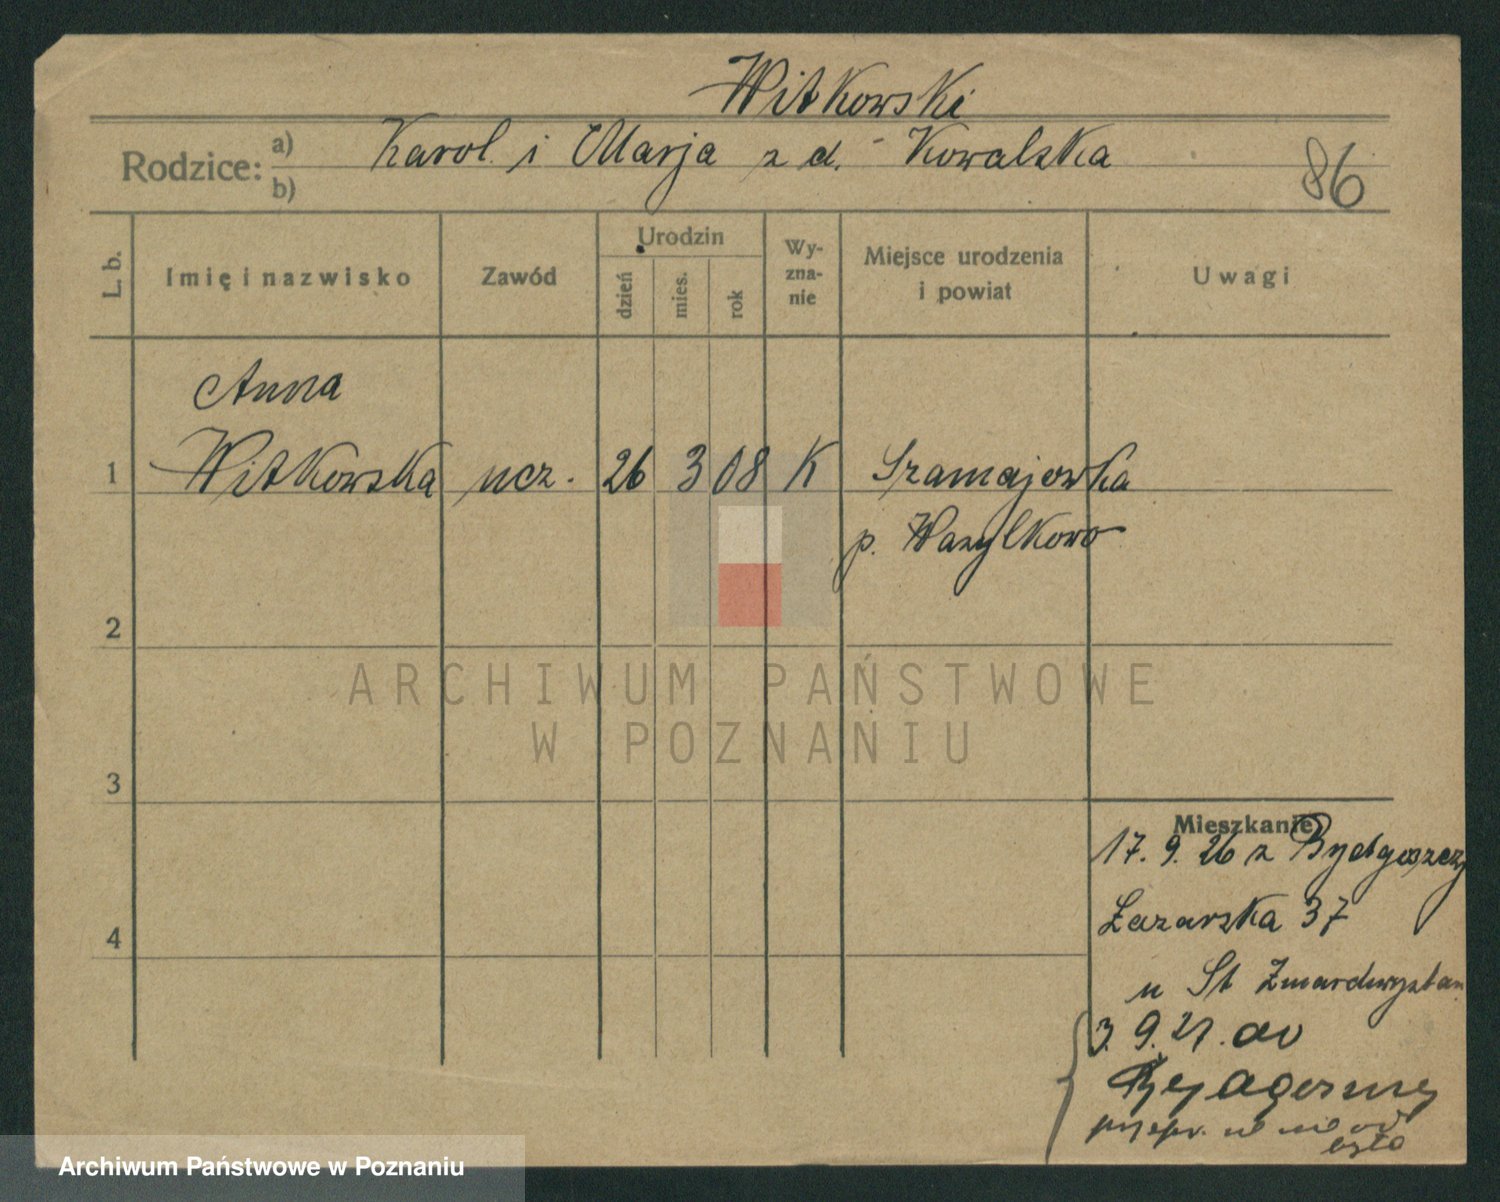 Witkowski
Rodzice: a) Karol i Marja z d. Kowalska
b)
86
L. b.
Imię i nazwisko
Zawód
Urodzin
dzień
mies.
rok
Wy-
zna-
nie
Miejsce urodzenia
i powiat
Uwagi
Anna
1 Witkowska ucz. 26 3 08 K Szamajowka
p. Wasylkowo
2
3
4
Mieszkanie
17. 9. 26 z Bydgoszczy
Łazarska 37
u St Zmardwychstan
3. 9. 27. do
Bydgoszczy
ARCHIWUM PAŃSTWOWE
W POZNANIU
Archiwum Państwowe w Poznaniu